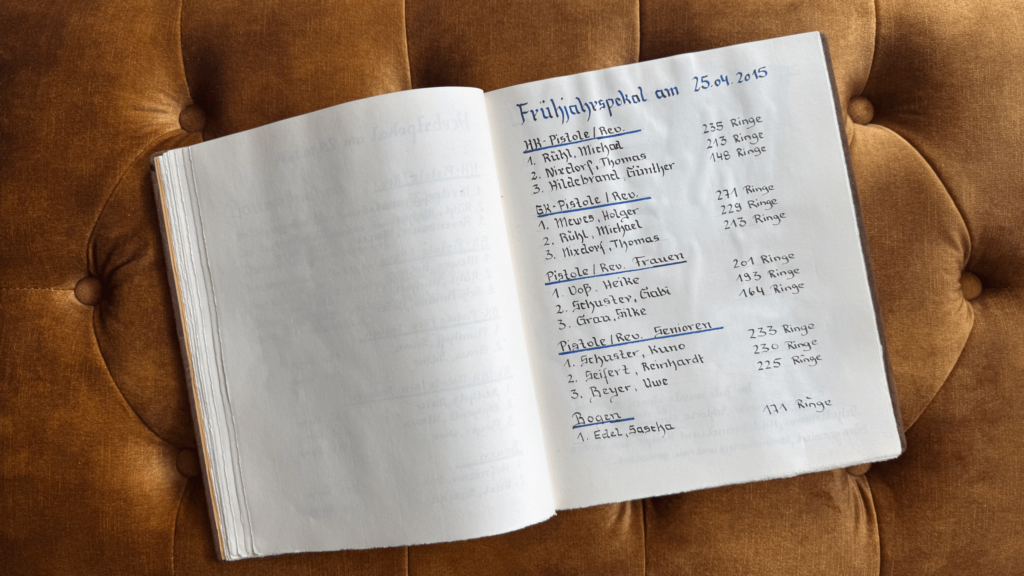 Frühjahrspokal am 25.04.2015
KK-Pistole/Rev.
1. Rühl, Michael 235 Ringe
2. Nixdorf, Thomas 213 Ringe
3. Hildebrand, Günther 148 Ringe
GK-Pistole/Rev.
1. Mewes, Holger 271 Ringe
2. Rühl, Michael 229 Ringe
3. Nixdorf, Thomas 213 Ringe
Pistole/Rev. Frauen
1. Voß, Heike 201 Ringe
2. Schuster, Gabi 193 Ringe
3. Grau, Silke 164 Ringe
Pistole/Rev. Senioren
1. Schuster, Kuno 233 Ringe
2. Seifert, Reinhardt 230 Ringe
3. Beyer, Uwe 225 Ringe
Bogen
1. Edel, Sascha 171 Ringe